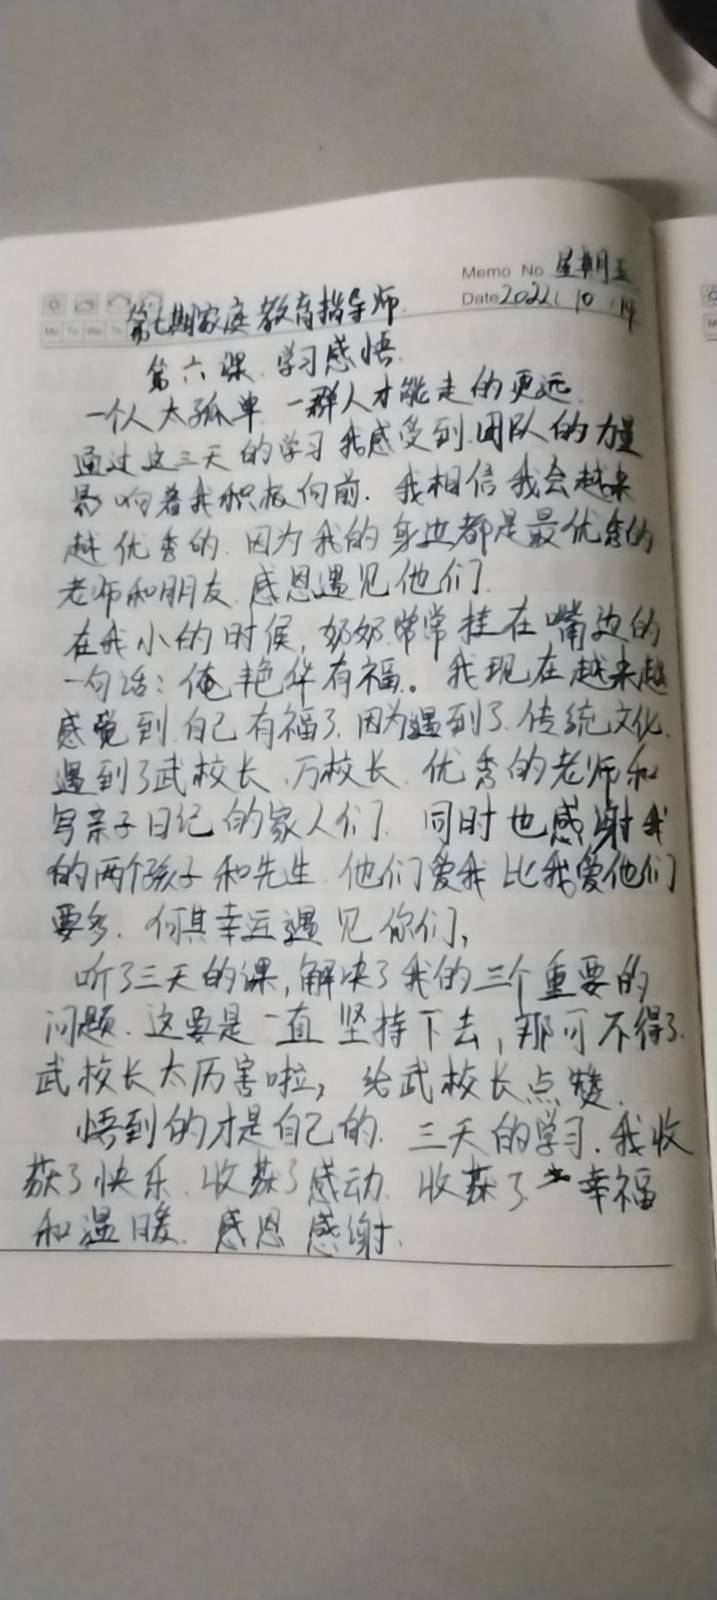 Memo No. 星期五
Mo Tu We Th
Date 2022 / 10 / 14
第七期家庭教育指导师.
第六课.学习感悟.
一个人太孤单.一群人才能走的更远.
通过这三天的学习我感受到.团队的力量
影响着我积极向前.我相信我会越来
越优秀的.因为我的身边都是最优秀的
老师和朋友.感恩遇见他们.
在我小的时候,奶奶.常常挂在嘴边的
一句话:俺艳华有福。我现在越来越
感觉到.自己有福了.因为遇到了.传统文化.
遇到了武校长.万校长.优秀的老师和
写亲子日记的家人们.同时也感谢我
的两个孩子和先生.他们爱我比我爱他们
要多.何其幸运遇见你们,
听了三天的课,解决了我的三个重要的
问题.这要是一直坚持下去,那可不得了.
武校长太厉害啦,给武校长点赞.
悟到的才是自己的.三天的学习.我收
获了快乐.收获了感动.收获了幸福
和温暖.感恩感谢.